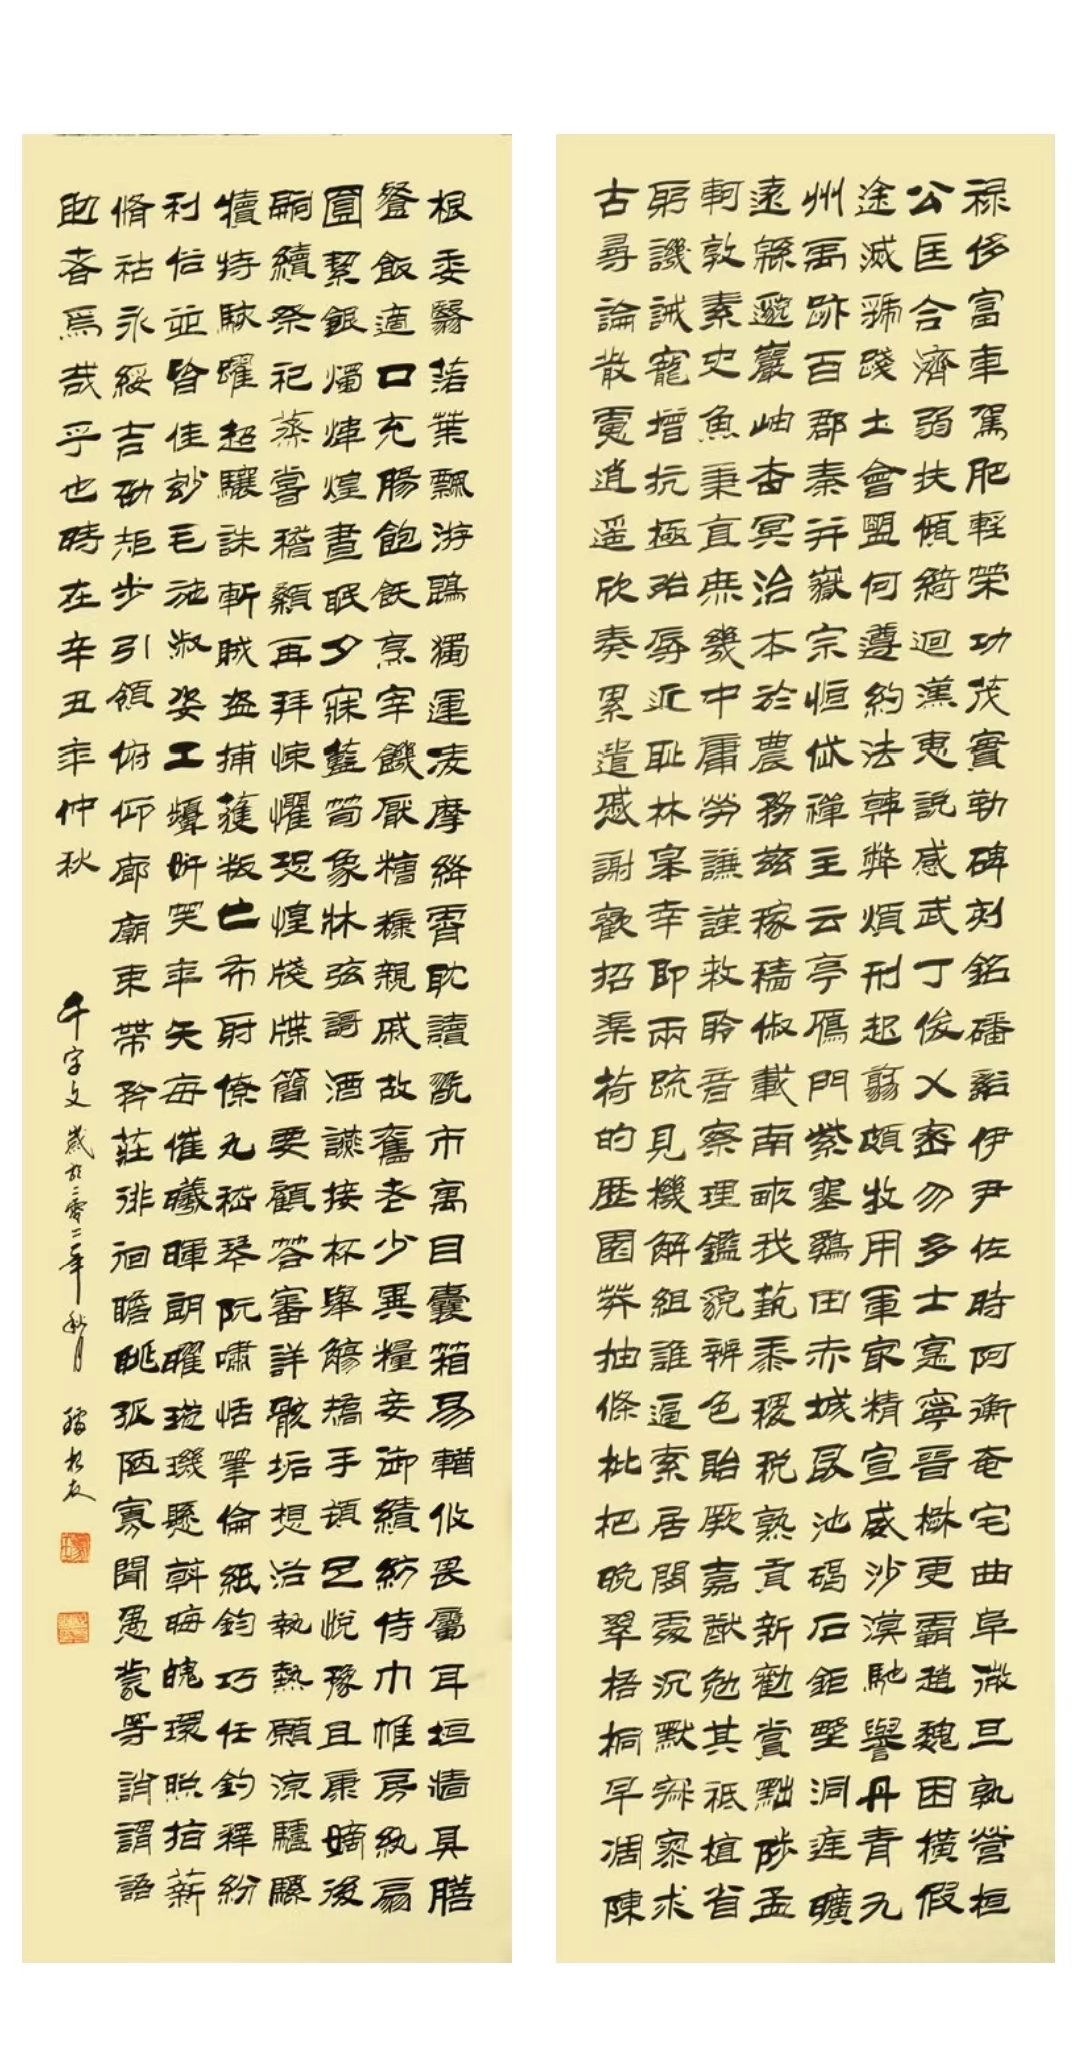 禄侈富車駕肥輕榮功茂實勒碑刻銘磻谿伊尹佐時阿衡奄宅曲阜微旦孰營桓
公匡合濟弱扶傾綺迴漢惠說感武丁俊乂密勿多士寔寧晉楚更霸趙魏困橫假
途滅虢踐土會盟何遵約法韓弊煩刑起翦頗牧用軍最精宣威沙漠馳譽丹青九
州禹跡百郡秦并嶽宗恒岱禪主云亭雁門紫塞鷄田赤城昆池碣石鉅野洞庭曠
遠緜邈巖岫杳冥治本於農務茲稼穡俶載南畝我藝黍稷稅熟貢新勸賞黜陟孟
軻敦素史魚秉直庶幾中庸勞謙謹敕聆音察理鑑貌辨色貽厥嘉猷勉其祗植省
躬譏誡寵增抗極殆辱近恥林皋幸即兩疏見機解組誰逼索居閒處沉默寂寥求
古尋論散慮逍遙欣奏累遣慼謝歡招渠荷的歷園莽抽條枇杷晚翠梧桐早凋陳
根委翳落葉飄游鵾獨運凌摩絳霄耽讀翫市寓目囊箱易輶攸畏屬耳垣牆具膳
餐飯適口充腸飽飫烹宰饑厭糟糠親戚故舊老少異糧妾御績紡侍巾帷房紈扇
圓絜銀燭煒煌晝眠夕寐藍筍象牀弦歌酒讌接杯舉觴矯手頓足悅豫且康嫡後
嗣續祭祀蒸嘗稽顙再拜悚懼恐惶牋牒簡要顧答審詳骸垢想浴執熱願涼驢騾
犢特駭躍超驤誅斬賊盜捕獲叛亡布射僚丸嵇琴阮嘯恬筆倫紙鈞巧任釣釋紛
利俗並皆佳妙毛施淑姿工顰妍笑年矢每催曦暉朗曜璇璣懸斡晦魄環照指薪
脩祜永綏吉劭矩步引領俯仰廊廟束帶矜莊徘徊瞻眺孤陋寡聞愚蒙等誚謂語
助者焉哉乎也時在辛丑年仲秋
千字文歲於二零二一年秋月